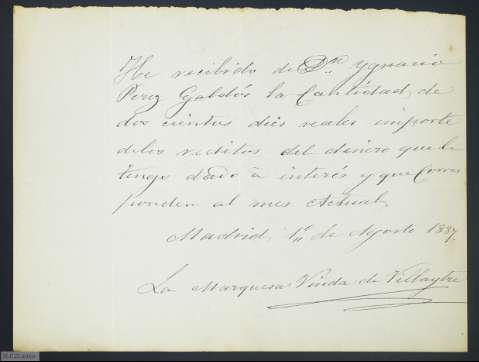 He recibido de Dn. Ygnacio
Perez Galdós la Cantidad de
dos cientos diés reales importe
delos reditos del dinero que le
tengo dado à interés y que Corres
ponden al mes Actual,
Madrid, 1º de Agosto 1887,
La Marquesa Viuda de